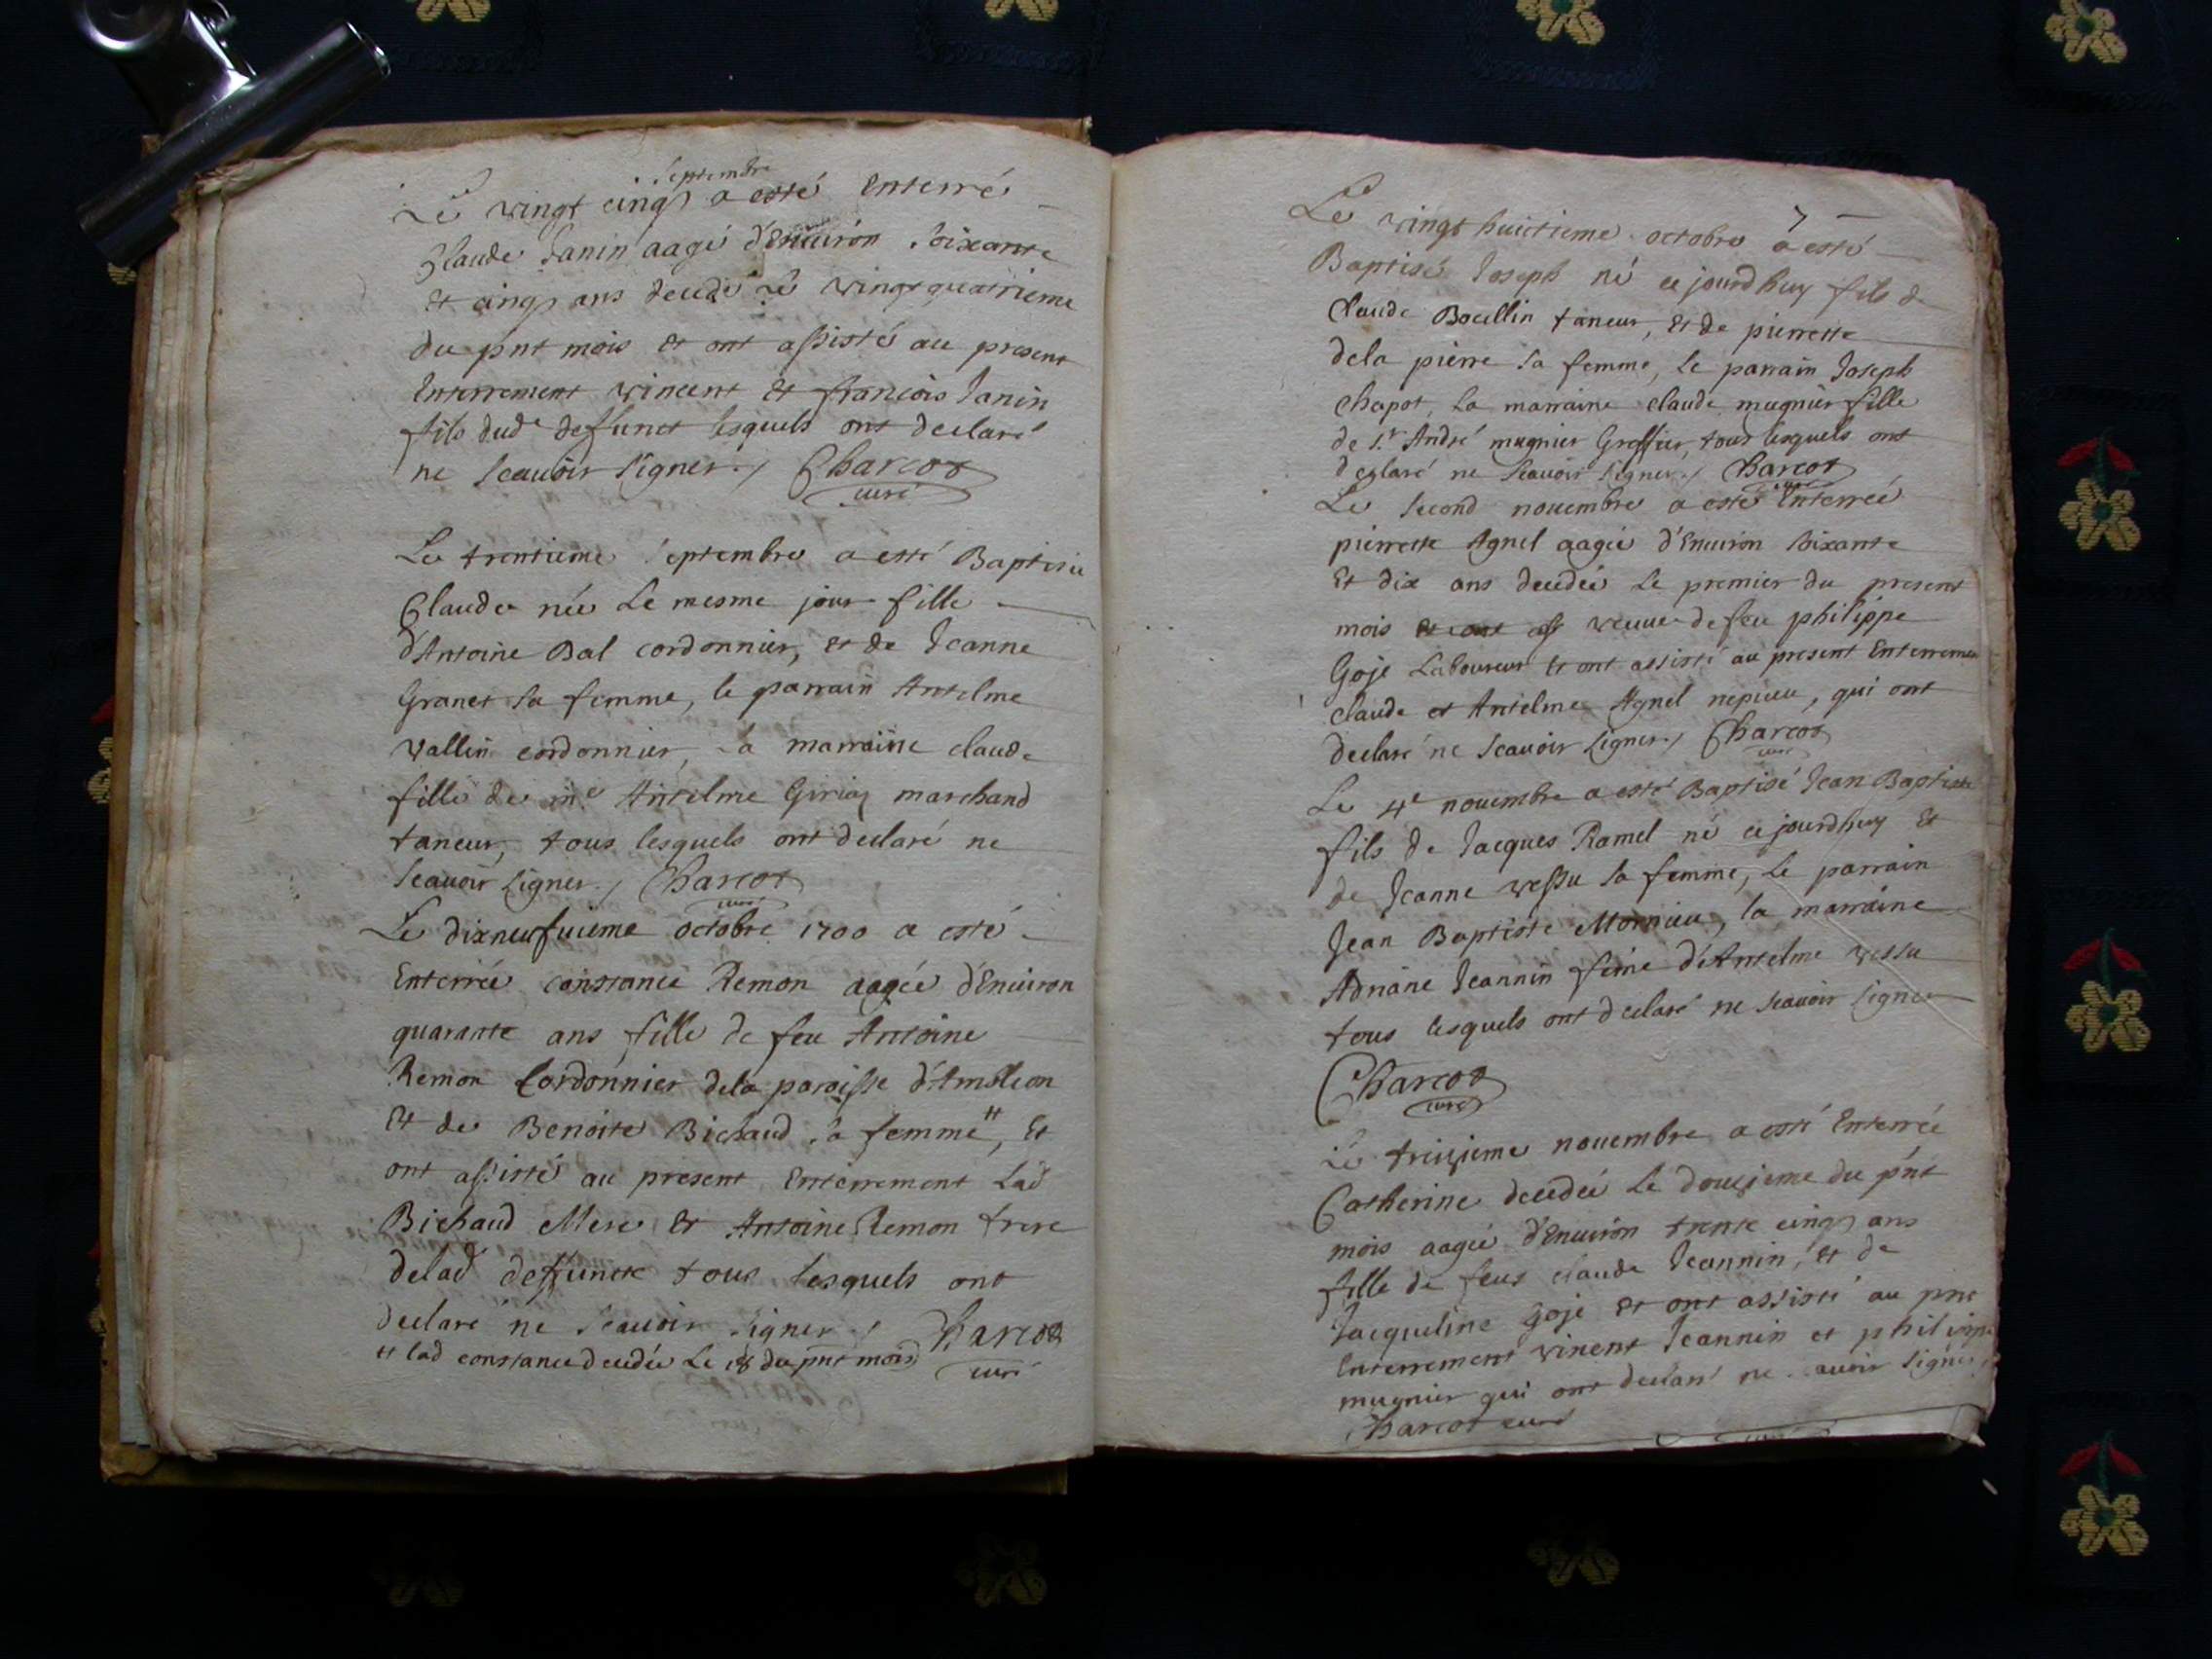 Septembre
Le vingt cinq a esté Enterré
Claude Janin aagé d'Enuiron soixante
et cinq ans decedé le vingt quatrieme
du pnt mois et ont assisté au present
Enterrement vincent et francois Janin
fils dude defunct lesquels ont declaré
ne scauoir signer./ Charcot
curé
Le trentieme septembre a esté Baptisée
Claude née Le mesme jour fille
d'Antoine Bal cordonnier, et de Jeanne
Granet sa femme, le parrain Antelme
vallin cordonnier, la marraine claude
fille de me Antelme marchand
taneur, tous lesquels ont declaré ne
scauoir signer./ Charcot
curé
Le dixneufuieme octobre 1700 a esté
Enterrée constance Remon aagée d'Enuiron
quarante ans fille de feu Antoine
Remon Cordonnier dela paroisse d'Ambleon
Et de Benoite Bichaud sa femme #, Et
ont assisté au present Enterrement Lad
Bichaud Mere Et Antoine Remon frere
delad deffuncte tous lesquels ont
declaré ne scauoir signer./ Charcot
# lad constance decedée Le 18 du pnt mois curé
7
Le vingt huictieme octobre a esté
Baptisé Joseph né ce jourdhuy fils de
Claude Boullin taneur, Et de pierrette
dela pierre sa femme, le parrain Joseph
Chapot, La marraine claude mugnier fille
de Sr André mugnier Greffier, tous lesquels ont
declaré ne scauoir signer./ Charcot
curé
Le second nouembre a esté Enterrée
pierrette Agnel aagée d'Enuiron soixante
Et dix ans decedée Le premier du present
mois et ont ass veuue de feu philippe
Goje Laboureur Et ont assisté au present Enterremen
claude et Antelme Agnel nepueu, qui ont
declaré ne scauoir signer./ Charcot
curé
Le 4e nouembre a esté Baptisé Jean Baptiste
fils de Jacques Ramel né ce jourdhuy Et
de Jeanne vessu sa femme, Le parrain
Jean Baptiste Mornieu, la marraine
Adriane Jeannin feme d'Antelme vessu
tous lesquels ont declaré ne scauoir signer
Charcot
curé
Le treizieme nouembre a esté Enterrée
Catherine decedée Le douzieme du pnt
mois aagée d'Enuiron trente cinq ans
fille de feus claude Jeannin, et de
Jacqueline Goje Et ont assisté au pnt
Enterrement vincent Jeannin et philippe
mugnier qui ont declaré ne scauoir signer
Charcot curé